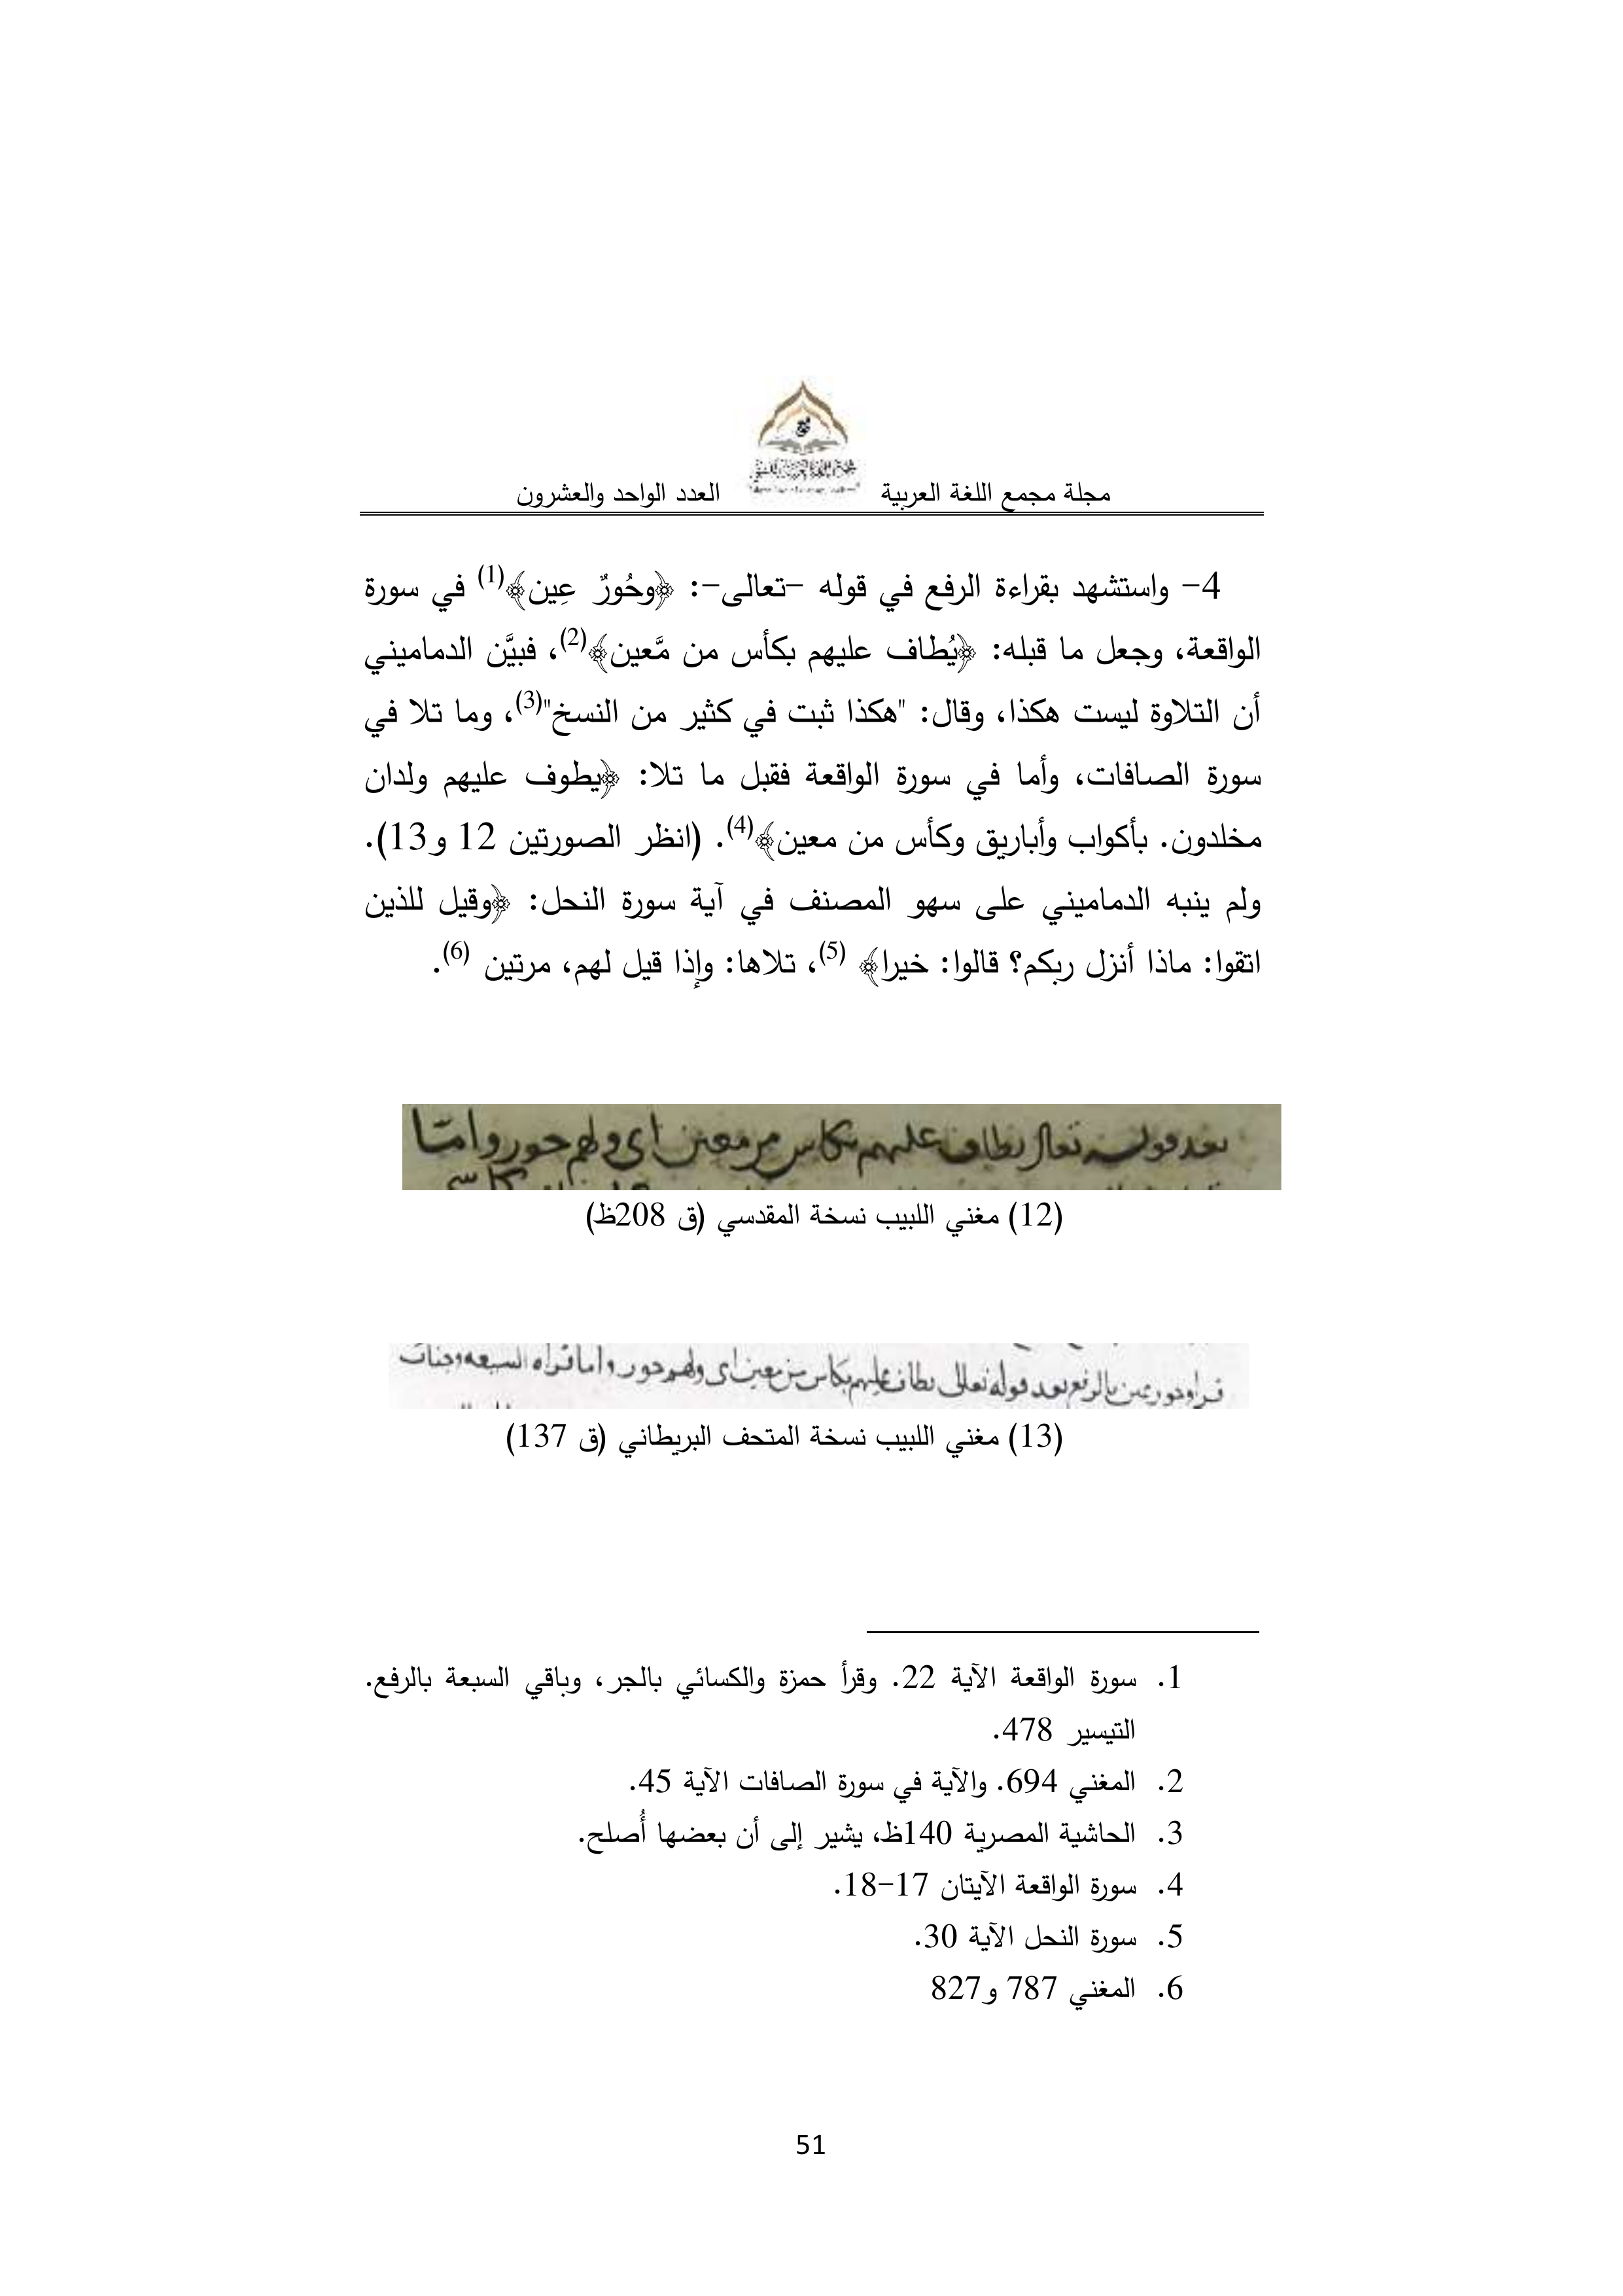 مجلة مجمع اللغة العربية العدد الواحد والعشرون
4- واستشهد بقراءة الرفع في قوله -تعالى-: ﴿وحُورٌ عِين﴾(1) في سورة
الواقعة، وجعل ما قبله: ﴿يُطاف عليهم بكأس من مَّعين﴾(2)، فبيَّن الدماميني
أن التلاوة ليست هكذا، وقال: "هكذا ثبت في كثير من النسخ"(3)، وما تلا في
سورة الصافات، وأما في سورة الواقعة فقبل ما تلا: ﴿يطوف عليهم ولدان
مخلدون. بأكواب وأباريق وكأس من معين﴾(4). (انظر الصورتين 12 و13).
ولم ينبه الدماميني على سهو المصنف في آية سورة النحل: ﴿وقيل للذين
اتقوا: ماذا أنزل ربكم؟ قالوا: خيرا﴾ (5)، تلاها: وإذا قيل لهم، مرتين (6).
بعد قوله تعالى يطاف عليهم بكاس من معين اي ولهم حور واما
(12) مغني اللبيب نسخة المقدسي (ق 208ظ)
قراوحور عين بالرفع بعد قوله تعالى يطاف عليهم بكاس من معين اي ولهم حور واما قراه السبعه وجنات
(13) مغني اللبيب نسخة المتحف البريطاني (ق 137)
1. سورة الواقعة الآية 22. وقرأ حمزة والكسائي بالجر، وباقي السبعة بالرفع.
التيسير 478.
2. المغني 694. والآية في سورة الصافات الآية 45.
3. الحاشية المصرية 140ظ، يشير إلى أن بعضها أُصلح.
4. سورة الواقعة الآيتان 17-18.
5. سورة النحل الآية 30.
6. المغني 787 و827
51